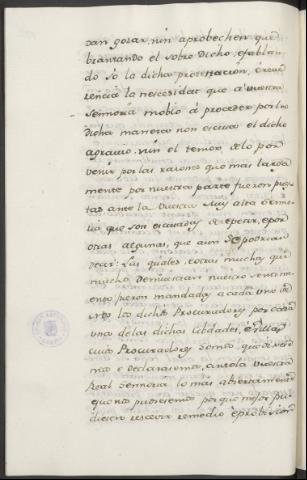 dan gozar, nin aprobechen que
brantando el sobre dicho, e fablan
do so la dicha protestacion, e reve
rencia la necesidad que a vuestra
Señoria mobió á proceder por la
dicha manera non escusa el dicho
agravio, nin el temor de lo por
venir por las razones que mas larga
mente por nuestra parte fueron pues
tas ante la Vuestra Muy alta Señor
ia que son escusadas de repetir, e por
otras algunas, que aun se podrian
decir: Las quales cosas muchas que
mucho demuestran nuestro sentimi
ento fueron mandadas a cada uno de
los dichos Procuradores por cada
una de las dichas Cibdades, e Villas
cuios Procuradores somos, que dixese
mos e declarasemos, a notá Vuestra
Real Señoria lo mas abiertamente
que nos pudieremos por que mejor pu
diesen rescevir remedio e probision